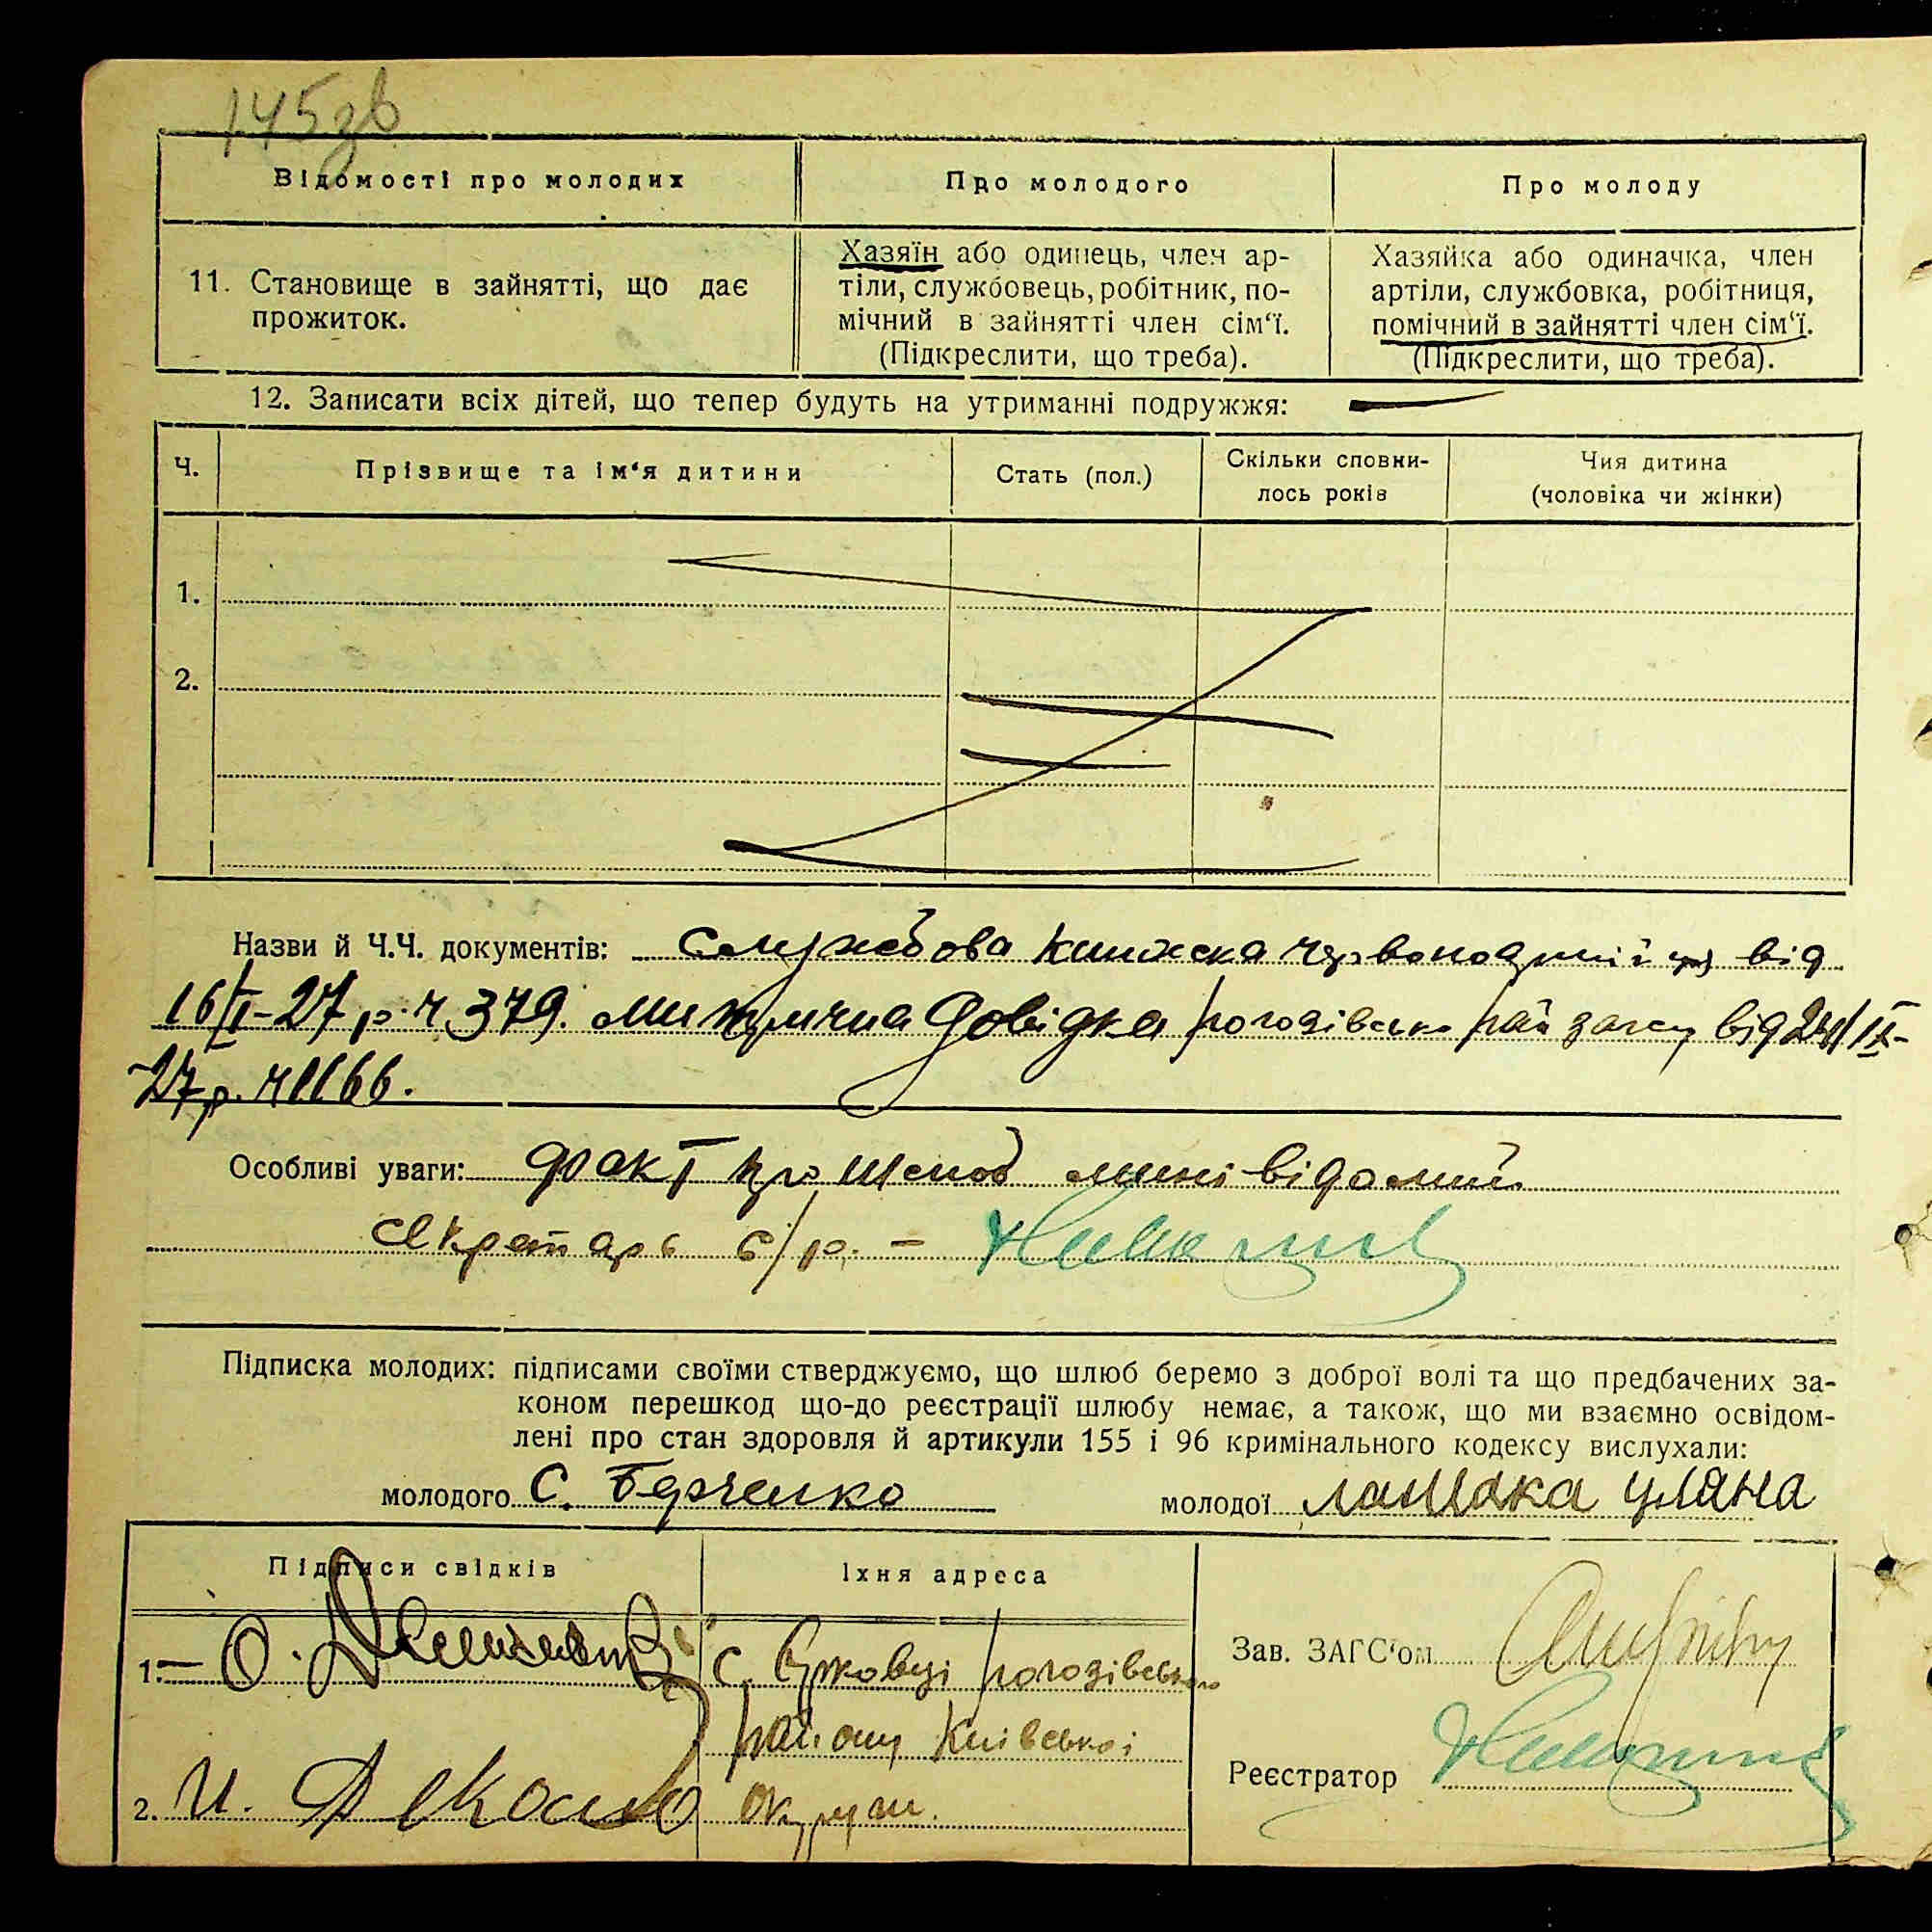 145зв
Відомості про молодих
Про молодого
Про молоду
11. Становище в зайнятті, що дає
прожиток.
Хазяїн або одинець, член ар-
тіли, службовець, робітник, по-
мічний в зайнятті член сім‘ї.
(Підкреслити, що треба).
Хазяйка або одиначка, член
артіли, службовка, робітниця,
помічний в зайнятті член сім‘ї.
(Підкреслити, що треба).
12. Записати всіх дітей, що тепер будуть на утриманні подружжя: —
Ч.
Прізвище та ім‘я дитини
Стать (пол.)
Скільки сповни-
лось років
Чия дитина
(чоловіка чи жінки)
1.
2.
Назви й Ч.Ч. документів: Службова книжка від
16/ -27 р. ч 379. довідка рогозівсько рай загсу від /IX-
27 р. ч 1166.
Особливі уваги: факт про шлюб мині відомий
секретарь с/р. -
Підписка молодих: підписами своїми стверджуємо, що шлюб беремо з доброї волі та що предбачених за-
коном перешкод що-до реєстрації шлюбу немає, а також, що ми взаємно освідом-
лені про стан здоровля й артикули 155 і 96 кримінального кодексу вислухали:
молодого С.
молодої Уляна
Підписи свідків
Їхня адреса
1. – О.
с. рогозівського
району Київської
округи.
2. И.
Зав. ЗАГС‘ом
Реєстратор